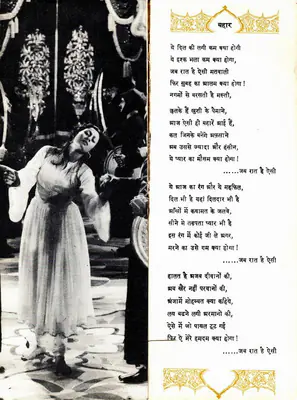 बहार
ये दिल की लगी कम क्या होगी
ये इश्क भला कम क्या होगा,
जब रात है ऐसी मतवाली
फिर सुबह का आलम क्या होगा !
नग़मों से बरसती है मस्ती,
छलके हैं खुशी के पैमाने,
आज ऐसी ही बहारें आई हैं,
कल जिनके बनेंगे अफ़साने
अब उससे ज्यादा और हसीन,
ये प्यार का मौसम क्या होगा !
......जब रात है ऐसी
ये आज का रंग और ये महफ़िल,
दिल भी है यहां दिलदार भी है
आँखों में कयामत के जलवे,
सीने में तड़पता प्यार भी है
इस रंग में कोई जी ले अगर,
मरने का उसे ग़म क्या होगा !
......जब रात है ऐसी
हालत है अजब दीवानों की,
अब खैर नहीं परवानों की,
अंजामे मोहब्बत क्या कहिये,
लय बढ़ने लगी अरमानों की,
ऐसे में जो पायल टूट गई
फिर ऐ मेरे हमदम क्या होगा !
......जब रात है ऐसी